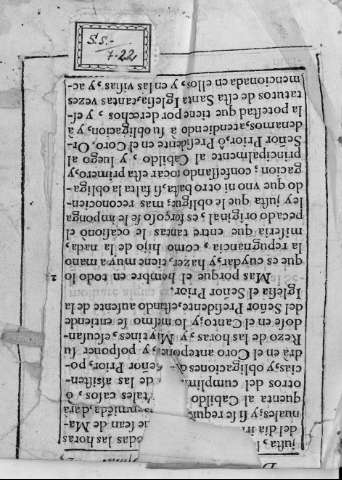 S.S.-
7-22
justa, odas las horas
del dia sean de Ma-
nuales; y si se dara
quenta al Cabildo tales casos, ò
otros del de las assisten-
cias, y obligaciones Señor Prior, po-
drà en el Coro anteponer, y posponer su
Rezo de las horas, y Maytines, escusan-
dose en el Canto; y lo mismo se entiende
del Señor Presidente, estando ausente de la
Iglesia el Señor Prior.
Mas porque el hombre en todo lo 2
que es cuydar, y hazer, tiene muy a mano
la repugnancia, como hijo de la nada,
miseria que entre tantas le ocasionò el
pecado original, es forçoso se le imponga
ley justa que le obligue; mas reconocien-
do que vno ni otro basta, si falta la obliga-
gacion; confessando tocar esta primero, y
principalmente al Cabildo, y luego al
Señor Prior, ò Presidente en el Coro, Or-
denamos, atendiendo à su obligacion, y à
la potestad que tiene por derechos, y es-
tatutos de esta Santa Iglesia, tantas vezes
mencionada en ellos, y en las visitas, y ac-